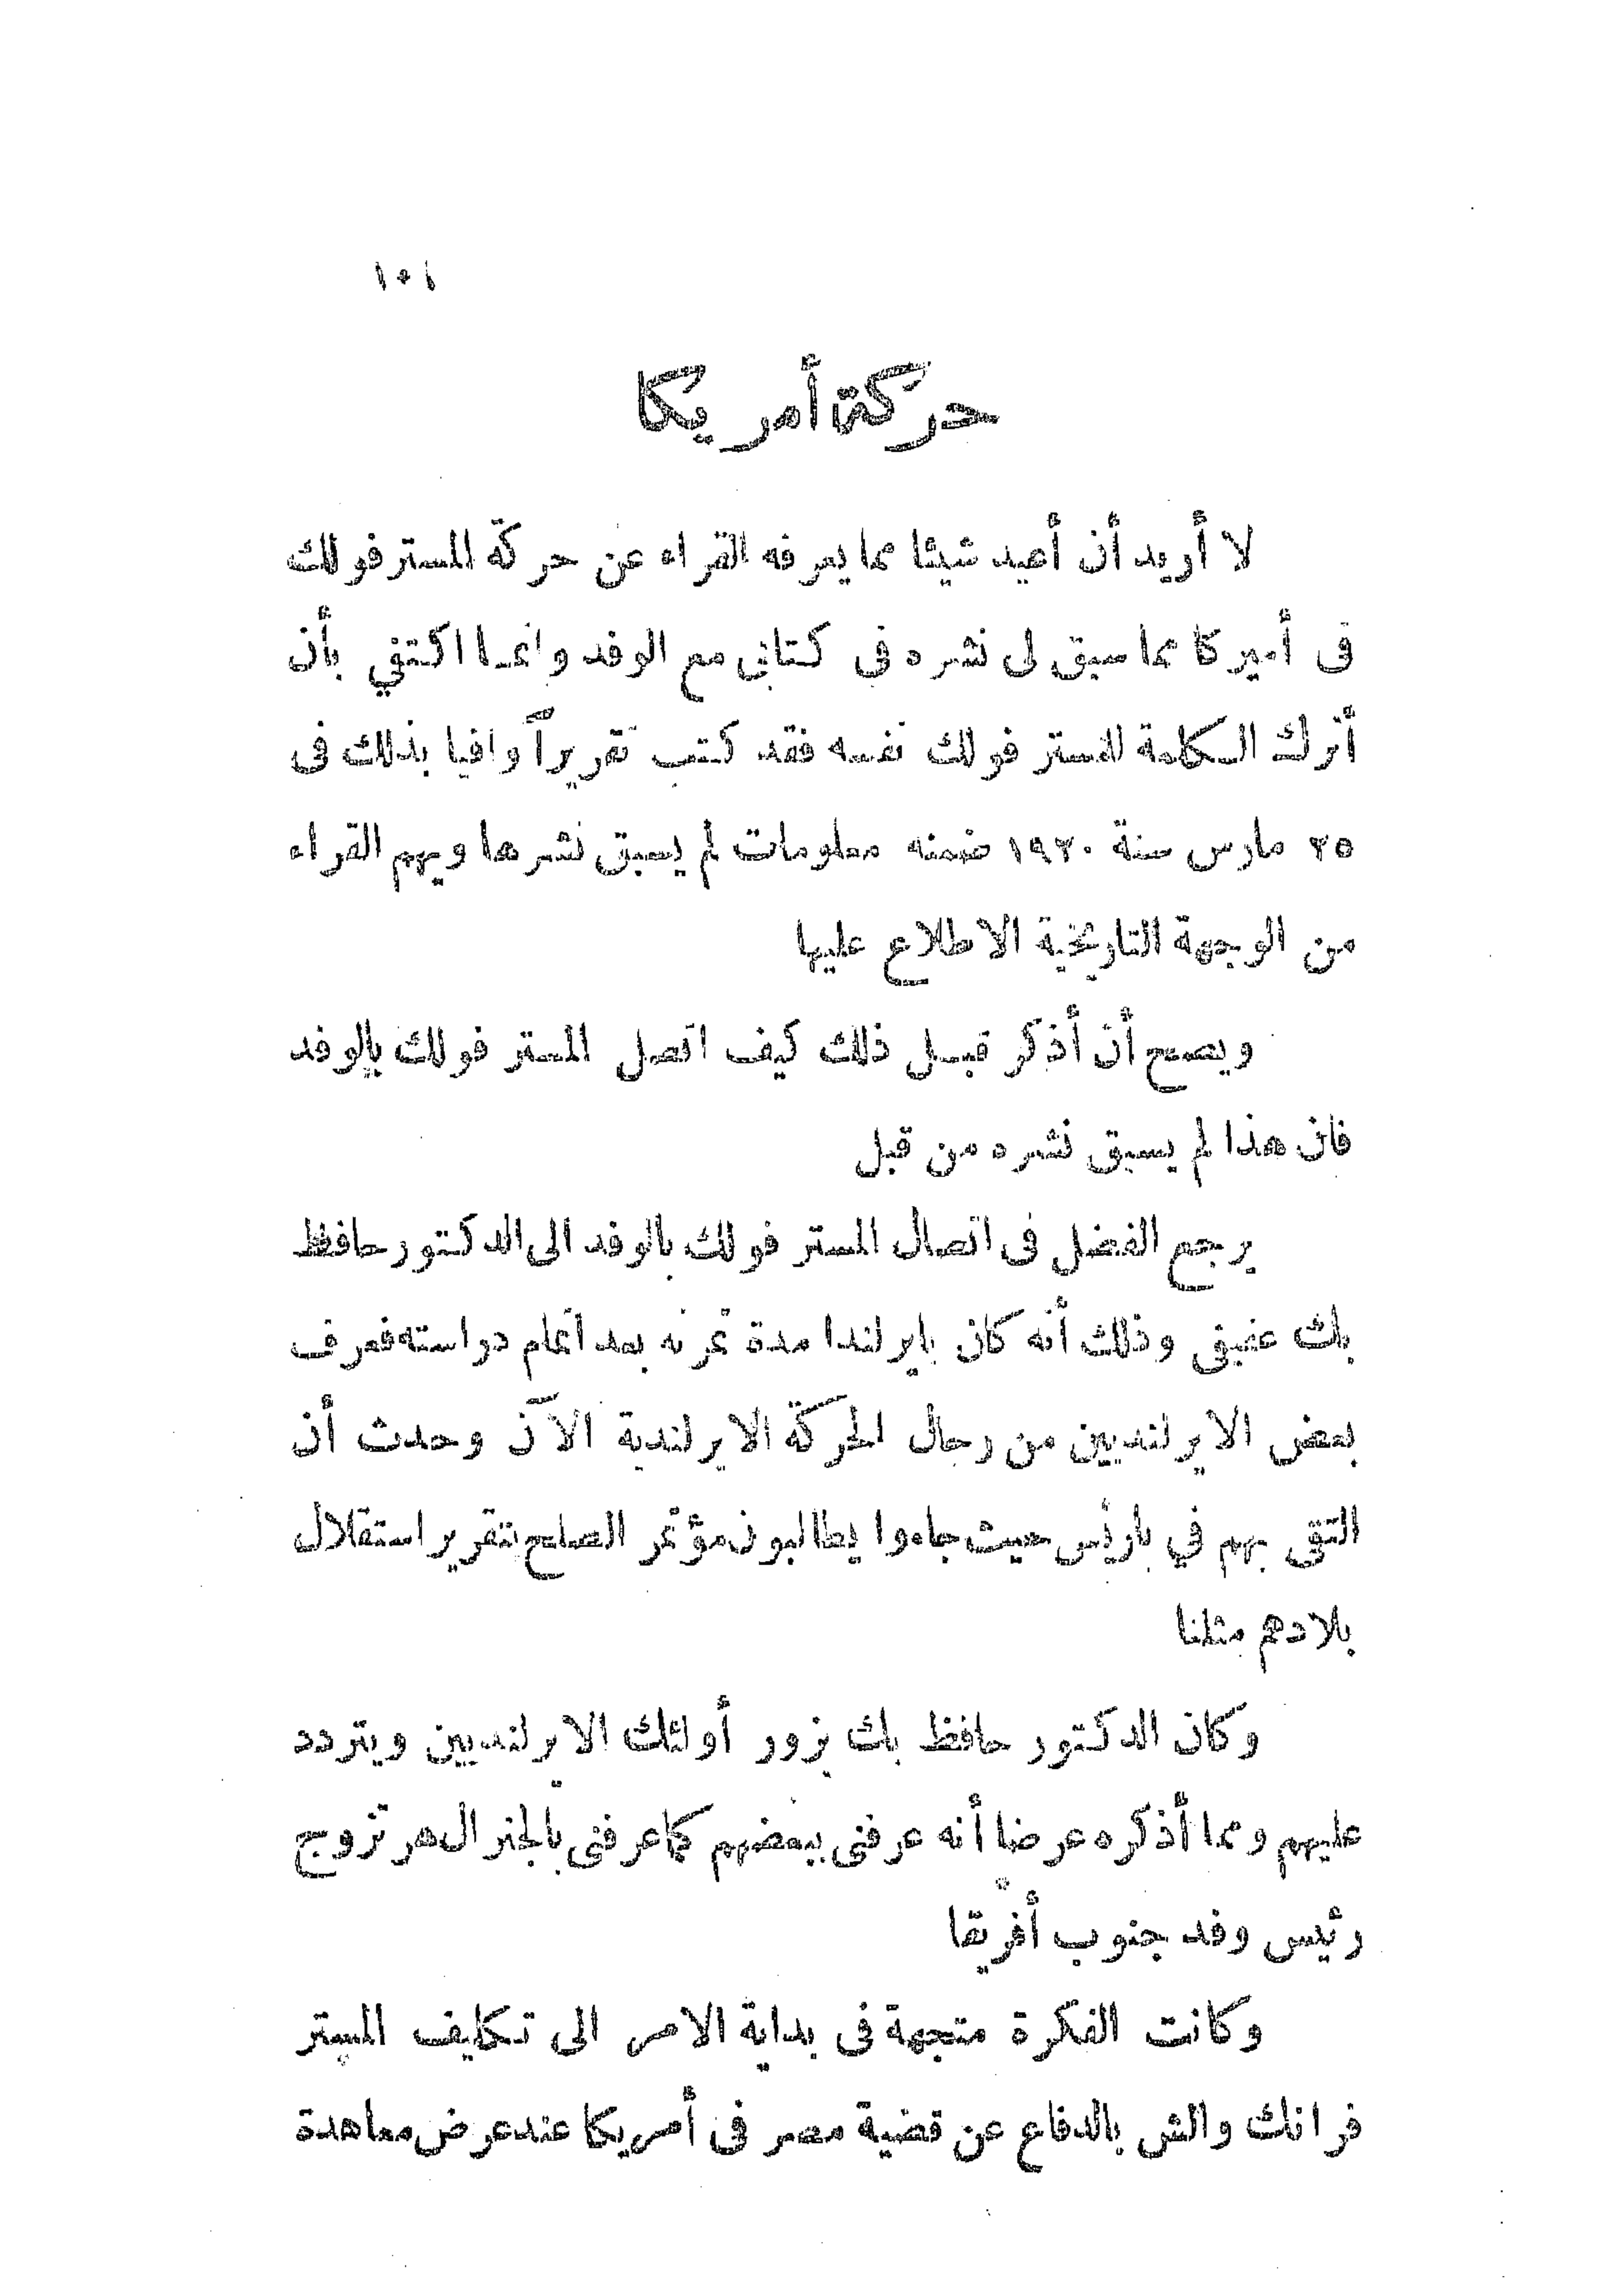 ١٠١
حركة أمريكا
لا أريد أن أعيد شيئا مما يعرفه القراء عن حركة المستر فولك
فى أميركا مما سبق لى نشره فى كتابى مع الوفد وانما اكتفي بأن
أترك الكلمة للمستر فولك نفسه فقد كتب تقريراً وافيا بذلك فى
٢٥ مارس سنة ١٩٢٠ ضمنه معلومات لم يسبق نشرها ويهم القراء
من الوجهة التاريخية الاطلاع عليها
ويصح أن أذكر قبل ذلك كيف اتصل المستر فولك بالوفد
فان هذا لم يسبق نشره من قبل
يرجع الفضل فى اتصال المستر فولك بالوفد الى الدكتور حافظ
بك عفيفى وذلك أنه كان بايرلندا مدة تمرنه بعد اتمام دراسته فعرف
بعض الايرلنديين من رجال الحركة الايرلندية الآن وحدث أن
التقى بهم في باريس حيث جاءوا يطالبون مؤتمر الصلح بتقرير استقلال
بلادهم مثلنا
وكان الدكتور حافظ بك يزور أولئك الايرلنديين ويتردد
عليهم ومما أذكره عرضا أنه عرفنى ببعضهم كما عرفنى بالجنرال هرتزوج
رئيس وفد جنوب أفريقا
وكانت الفكرة متجهة فى بداية الامر الى تكليف المستر
فرانك والش بالدفاع عن قضية مصر فى أمريكا عند عرض معاهدة